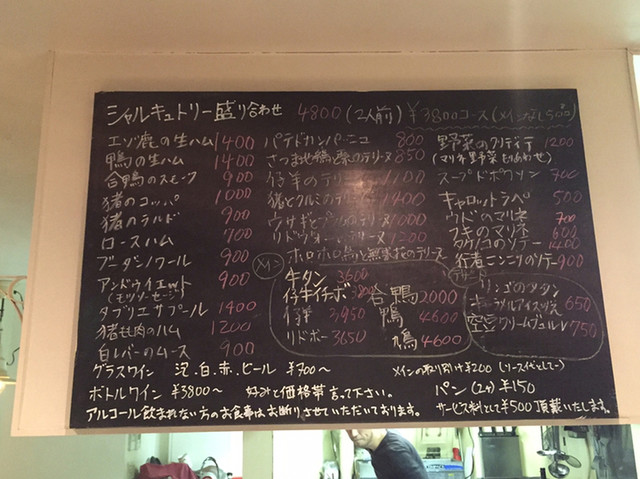 シャルキュトリー盛り合わせ 4800(2人前) ¥3800コース
エゾ鹿の生ハム 1400
鴨の生ハム 1400
合鴨のスモーク 900
猪のコッパ 1000
猪のラルド 900
ロースハム 700
ブータンノワール 900
アンドゥイエット 900
(モツソーセージ)
タブリエサプール 1400
猪もも肉のハム 1200
白レバーのムース 900
パテドカンパーニュ 800
さつま地鶏と栗のテリーヌ 850
仔羊のテリーヌ 1100
猪とクルミのテリーヌ
ウサギとテリーヌ 1000
リドヴォー 1200
ホロホロ鳥と無花果のテリーヌ
野菜の 1200
(マリネ野菜 盛りあわせ)
スープドポワソン 700
キャロットラペ 500
ウドのマリネ 700
フキのマリネ 600
タケノコのソテー 1400
行者ニンニクのソテー 900
メイン
牛タン 3600
仔牛イチボ 3800
仔羊 3950
リドボー 3650
合鴨 2000
鴨 4600
鳩 4600
デザート
リンゴのタタン
キャラメルアイス添え 650
空豆クリームブリュレ 750
グラスワイン 泡.白.赤.ビール ¥700〜
ボトルワイン ¥3800〜 好みと価格帯言って下さい。
アルコール飲まれない方のお食事はお断りさせていただいております。
メインの取り分け¥200 (ソース代として)
パン(2ヶ)¥150
サービス料として¥500頂戴いたします。